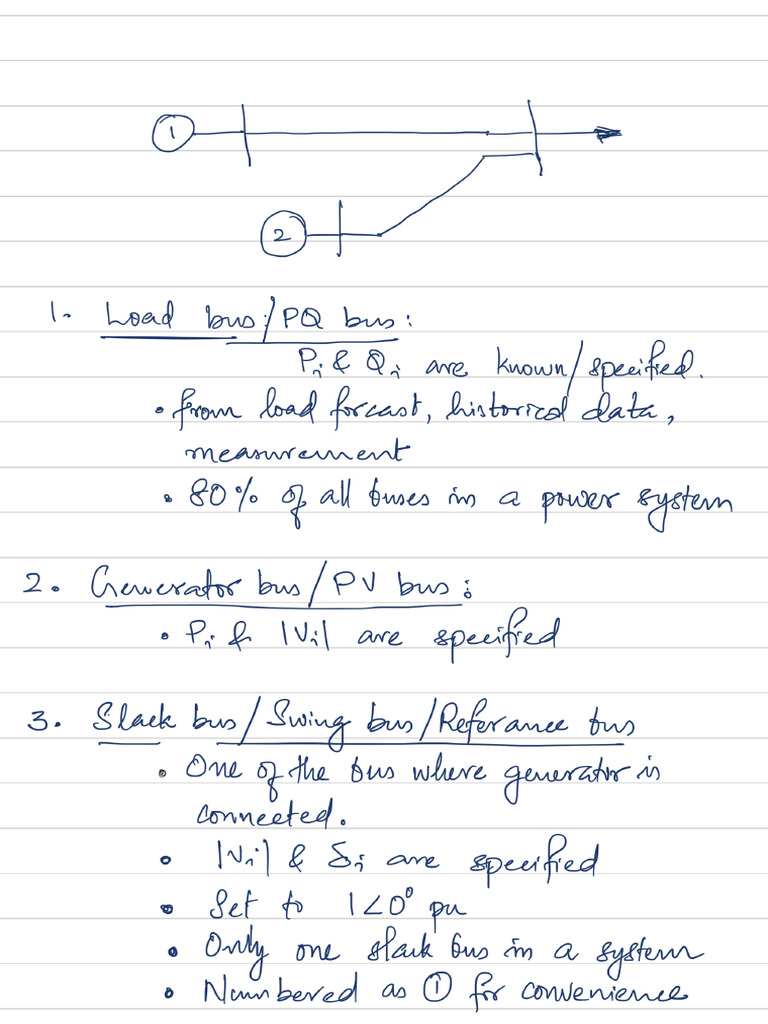 1
2
1. Load bus/PQ bus:
Pi & Qi are known/specified.
• from load forcast, historical data,
measurement
• 80% of all buses in a power system
2. Generator bus/PV bus:
• Pi & |Vi| are specified
3. Slack bus/Swing bus/Referance bus
• One of the bus where generator is
connected.
• |Vi| & δi are specified
• Set to 1∠0° pu
• Only one slack bus in a system
• Numbered as ① for convenience